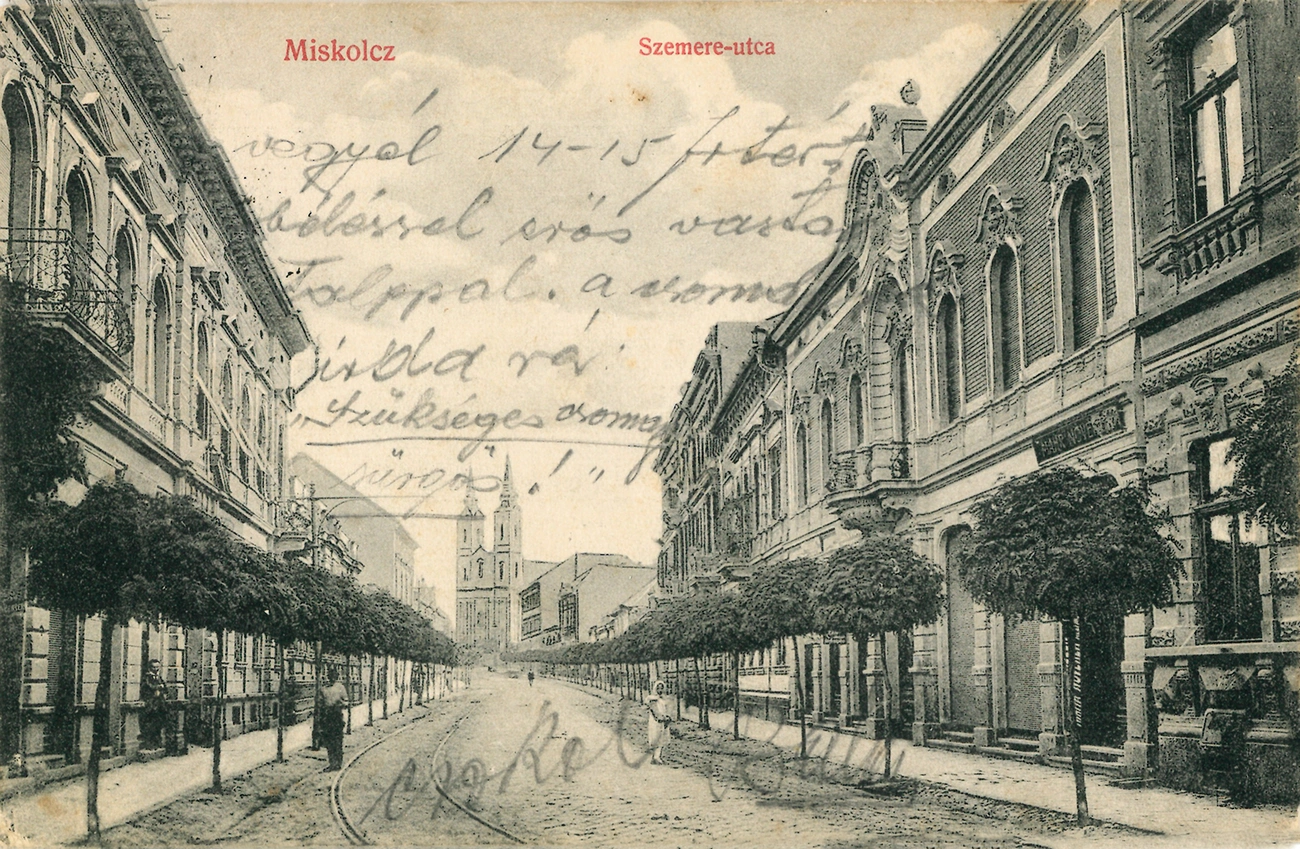 Miskolcz
Szemere-utca
vegyél 14-15 frtért
béléssel erős vasta
Talppal. a csomag
írdd rá:
„Szükséges csomag
sürgős!"
csókol